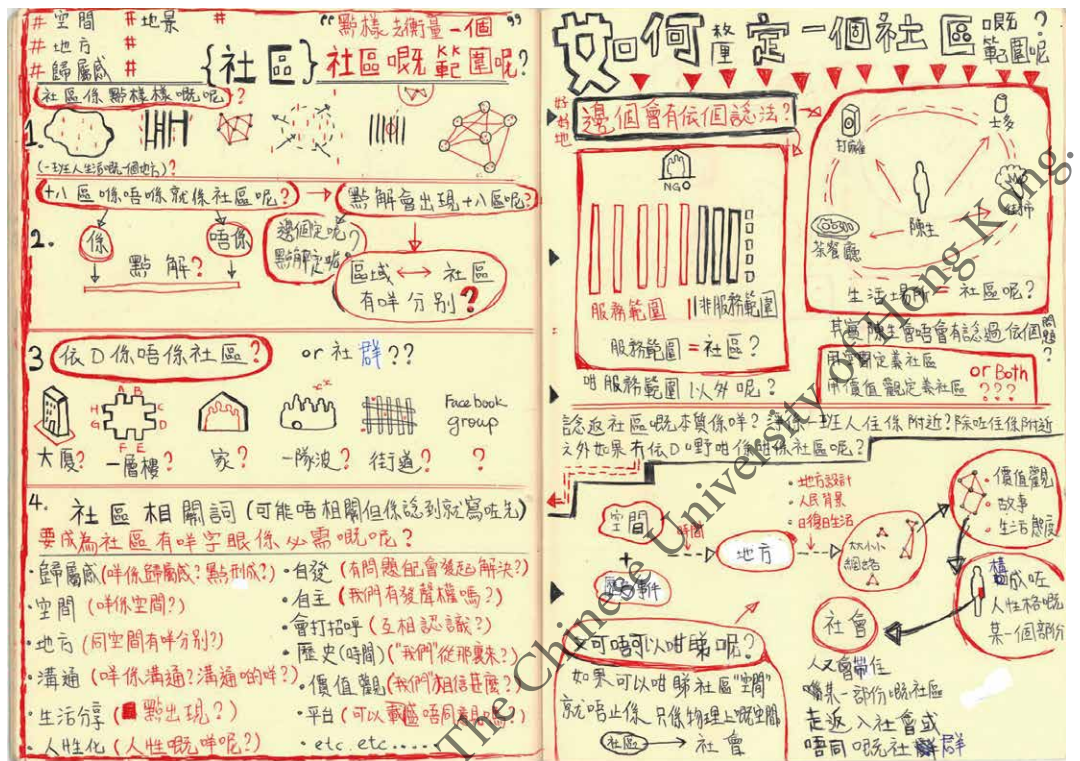 # 空間 #地景
# 地方 #
# 歸屬感 #
{社區}
“點樣去衡量一個”
社區嘅範圍呢?
社區係點樣樣嘅呢?
1.
(一班人生活嘅一個地方)?
十八區喺唔喺就係社區呢? → 點解會出現十八區呢?
2.
係
唔係
點解?
邊個定呢?
點解定呢?
區域 ↔ 社區
有咩分別?
3 依D係唔係社區? or 社群??
A B
H C
G D
F E
Facebook
group
大廈? 一層樓? 家? 一隊波? 街道? ?
4. 社區相關詞(可能唔相關但係諗到就寫咗先)
要成為社區有咩字眼係必需嘅呢?
・歸屬感(咩係歸屬感?點形成?)
・空間(咩係空間?)
・地方(同空間有咩分別?)
・溝通(咩係溝通?溝通啲咩?)
・生活分享(點出現?)
・人性化(人性嘅咩呢?)
・自發(有問題自己會發起解決?)
・自主(我們有發聲權嗎?)
・會打招呼(互相認識?)
・歷史(時間)("我們"從那裏來?)
・價值觀("我們"相信甚麼?)
・平台(可以載唔同意見嗎?)
・etc.etc.....
如何釐定一個社區嘅範圍呢?
好好地
邊個會有依個諗法?
NGO
服務範圍
非服務範圍
服務範圍=社區?
咁服務範圍以外呢?
士多
街市
陳生
茶餐廳
生活場所=社區呢?
其實陳生會唔會有諗過依個問題?
用空間定義社區
用價值觀定義社區
or Both
???
諗返社區嘅本質係咩?講係一班人住係附近?除咗住係附近
之外如果冇依D嘢咁係咁係社區呢?
空間
+
歷史事件
時間
地方
・地方設計
・人民背景
・日復日生活
大大小小
網絡
・價值觀
・故事
・生活態度
構成咗
人性格嘅
某一個部份
社會
人又會帶住
嗰某一部份嘅社區
走返入社會或
唔同嘅社群
又可唔可以咁睇呢?
如果可以咁睇社區"空間"
就唔止係只係物理上嘅空間
社區 → 社會
The Chinese University of Hong Kong.